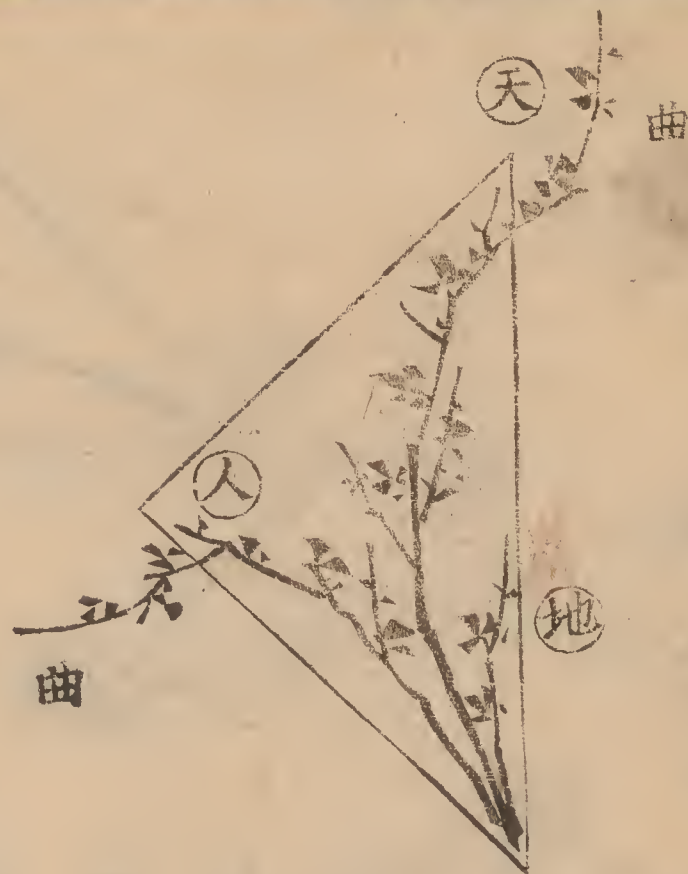 天
曲
人
地
曲